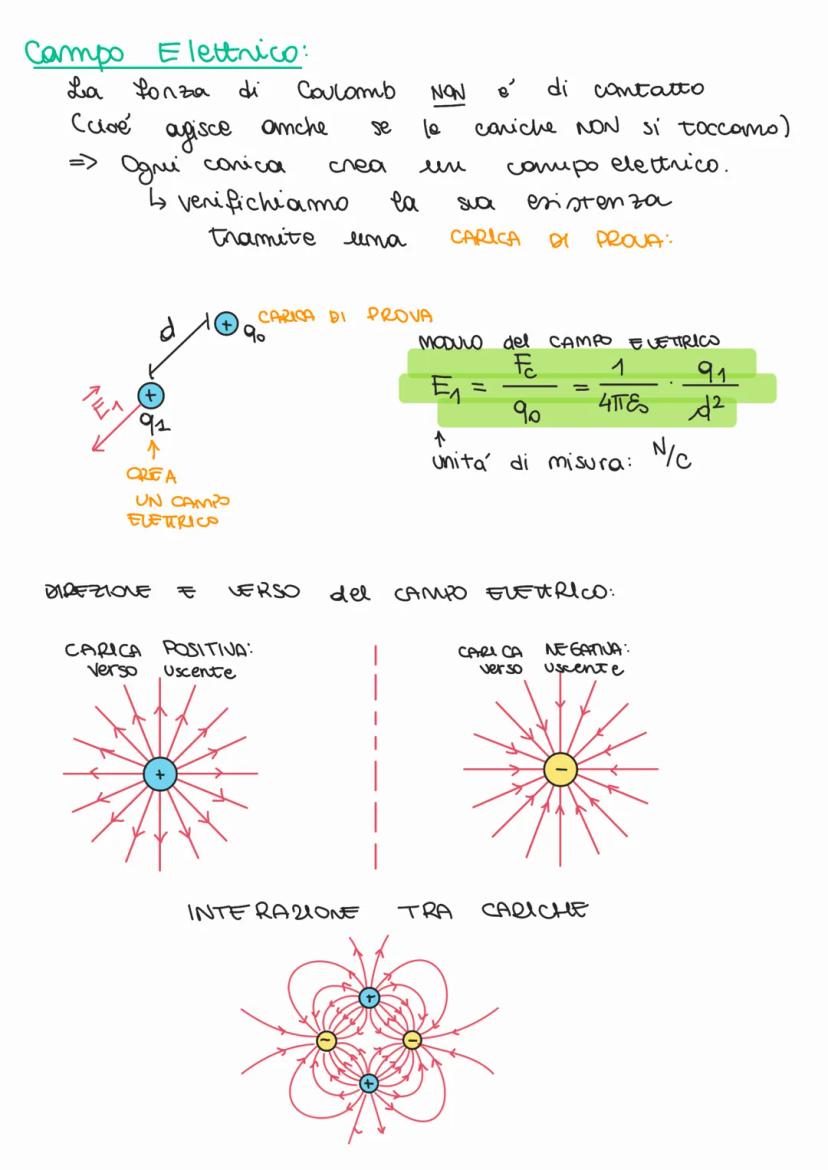 Campo Elettrico:
La forza di Coulomb NON e' di contatto
(cioé agisce anche se le cariche NON si toccano)
=> Ogni carica crea un campo elettrico.
↳ verifichiamo la sua esistenza
tramite una CARICA DI PROVA:
d
+ q0 CARICA DI PROVA
E1
+
q1
↑
CREA
UN CAMPO
ELETTRICO
MODULO del CAMPO ELETTRICO
E1 = Fc / q0 = 1 / 4πε0 · q1 / d²
↑
unita' di misura: N/C
DIREZIONE E VERSO del CAMPO ELETTRICO:
CARICA POSITIVA:
verso uscente
+
CARICA NEGATIVA:
verso uscente
−
INTERAZIONE TRA CARICHE
+
− −
+